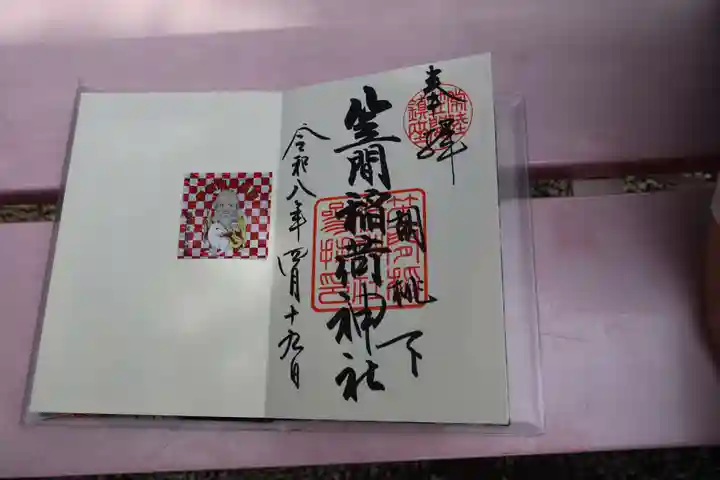 奉拝
胡桃下
笠間稲荷神社
令和八年四月十九日